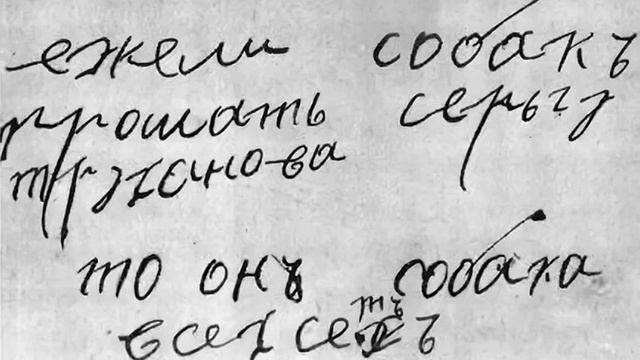 ежели собакъ
прощать серьгу
труханова
то онъ собака
всехъ сестъ